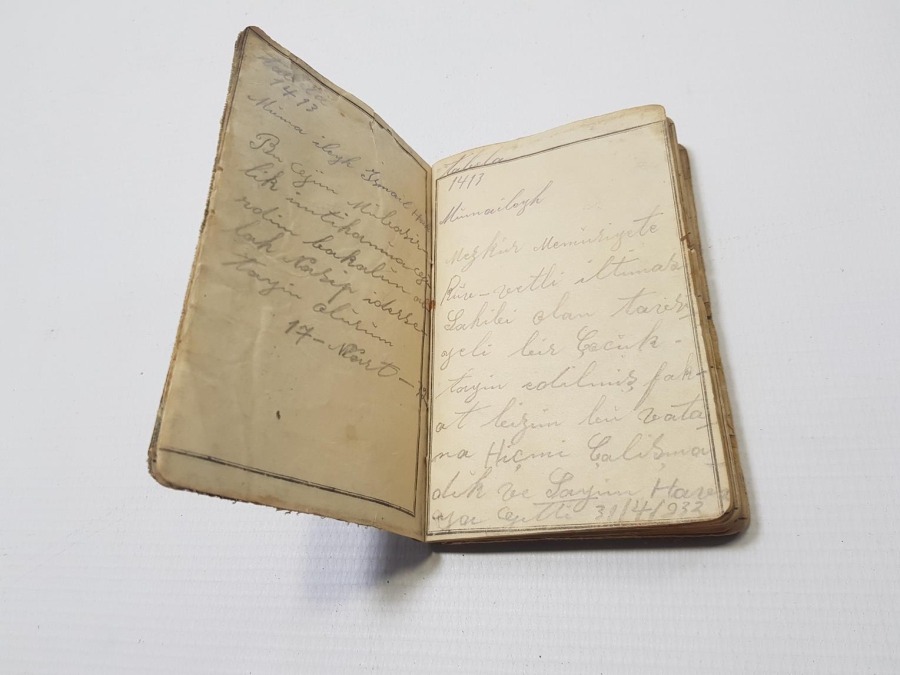 1413
Müma ileyh İsmail
Bu için Mübaşir
lik imtihanına
rdim bakalım
lah Nasip iderse
tayin olürüm
17-Mart-
1413
Mümaileyh
Mezkür Memüriyete
Küv-vetli iltimas
Sahibi olan
yeli bir Çocük-
tayin edilmiş fak-
at bizim bu vata
na Hiçmi Çalışma
dık ve Sayım Hava
ya gitti 31/4/932